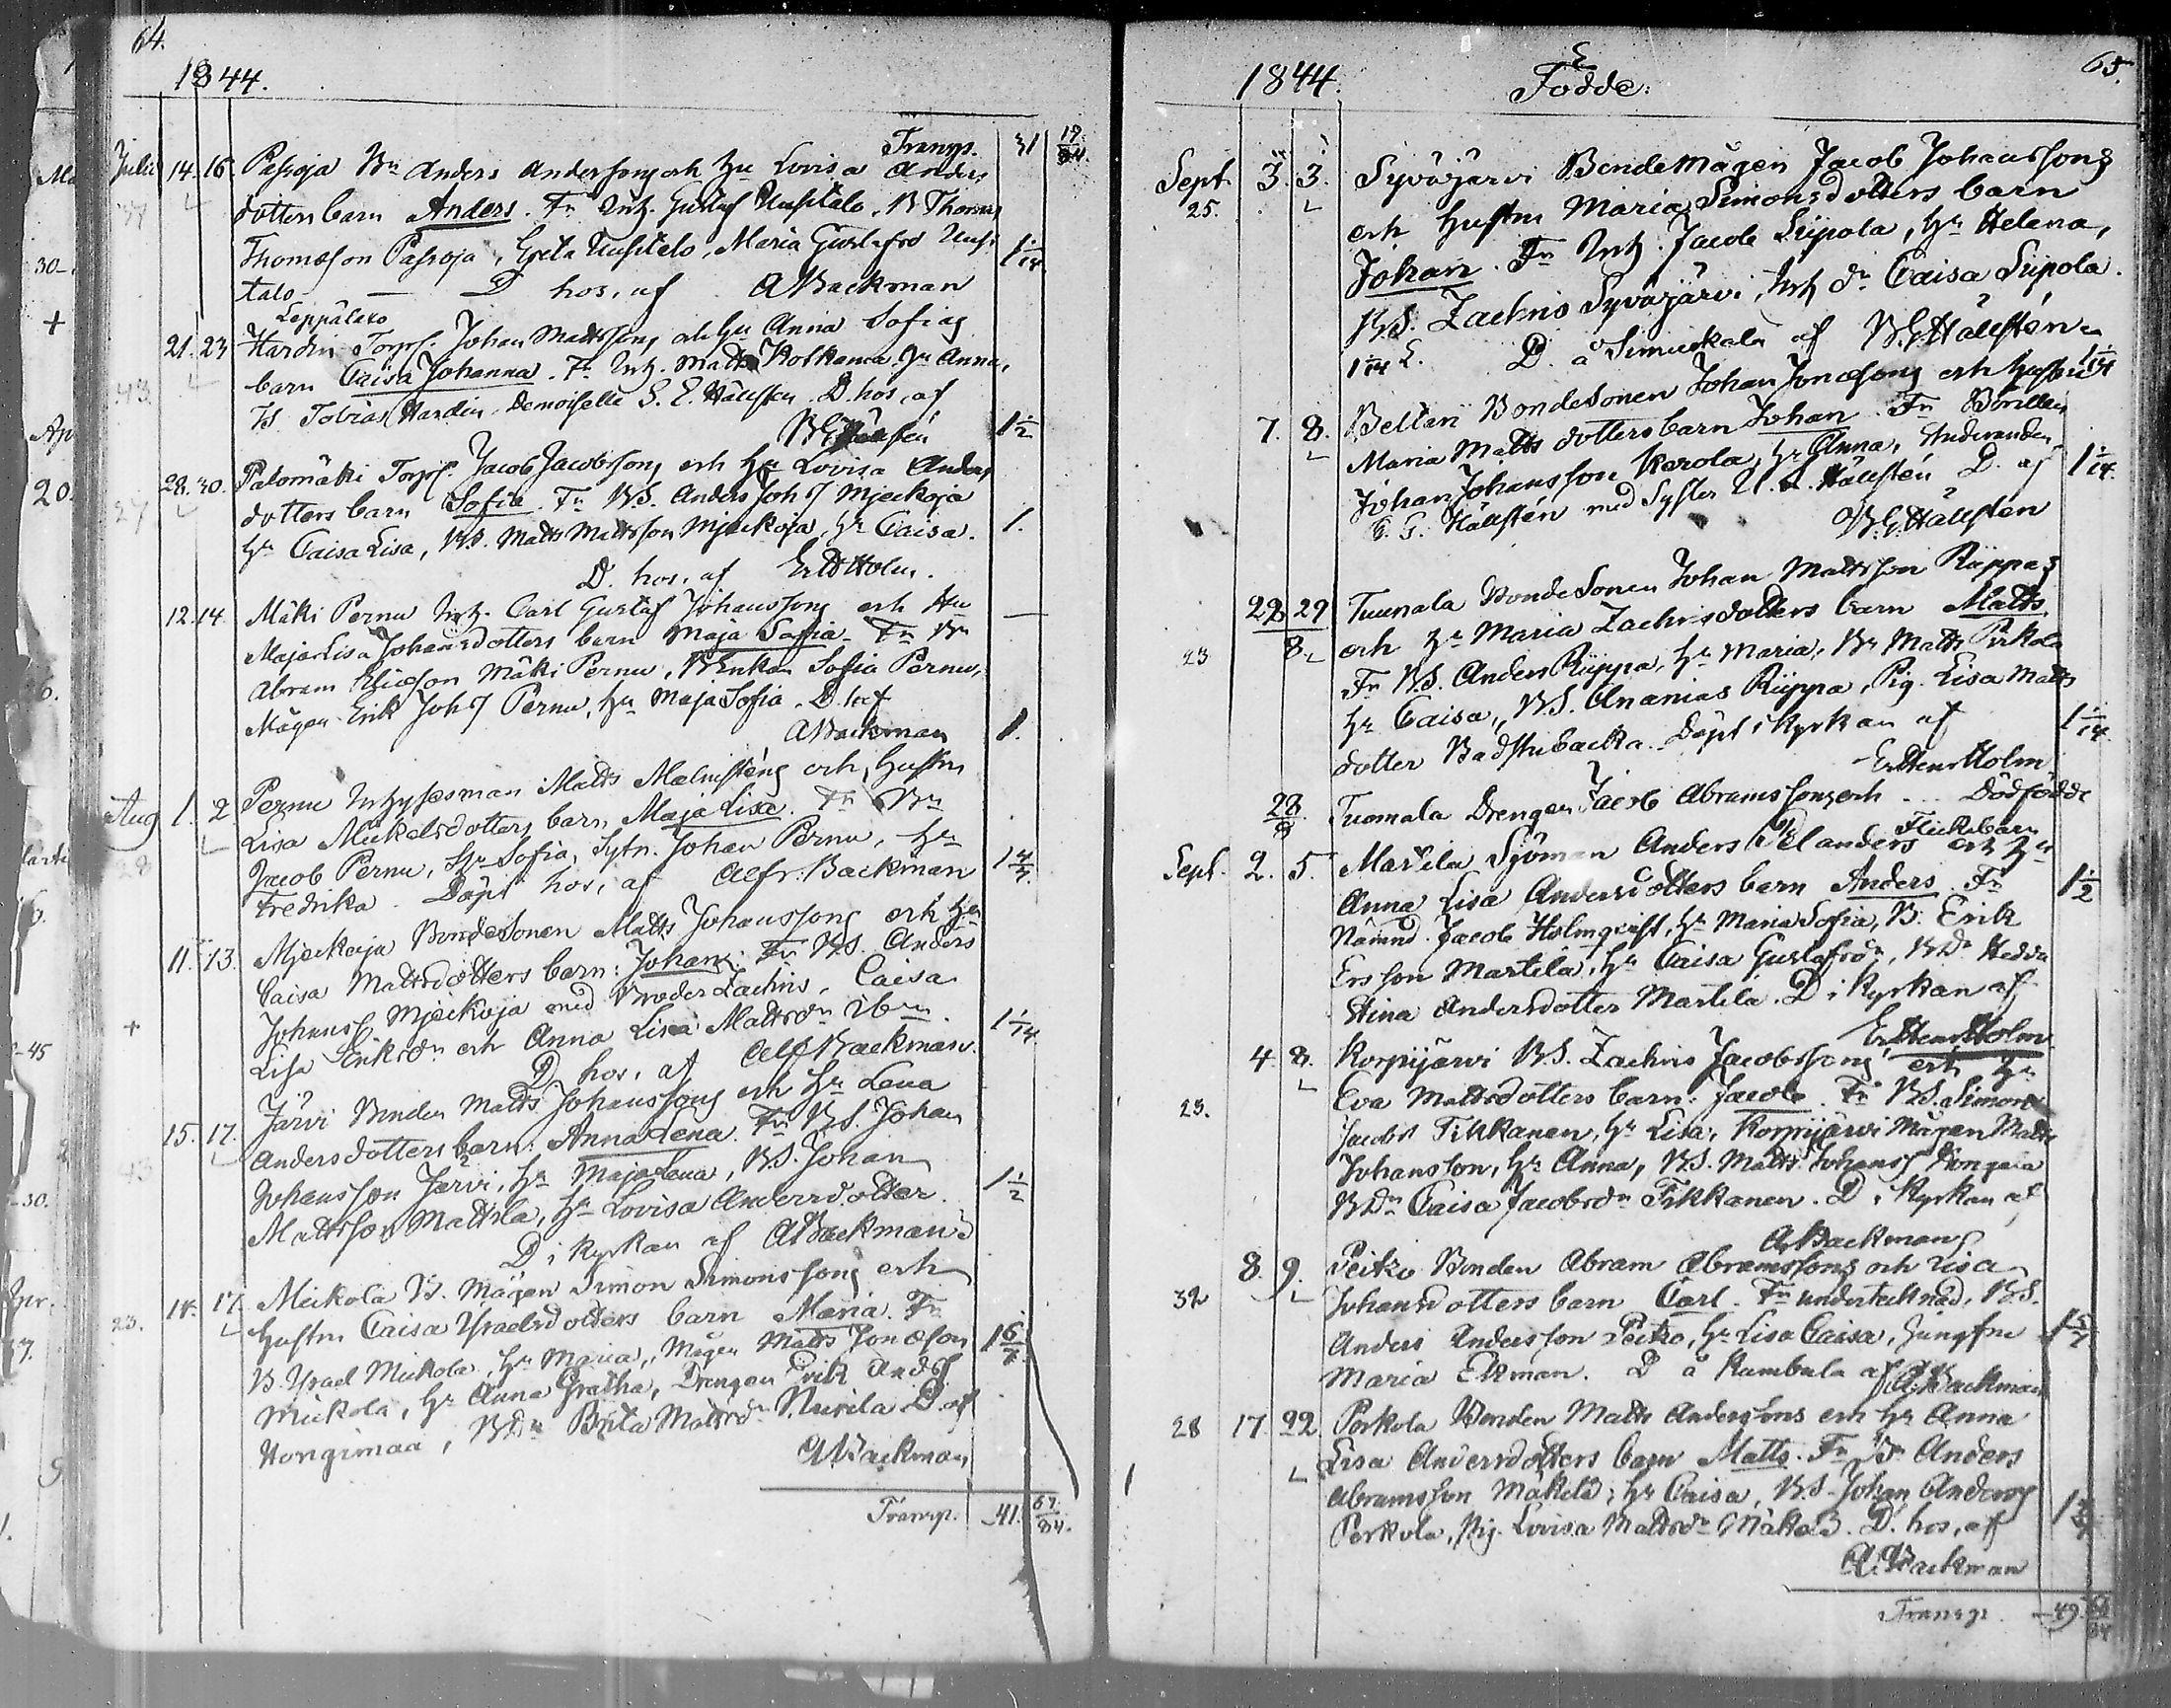 64.
1844.
Transp. 31 19/84.
Julii 14. 16. Passoja Bn Anders Anderssons och Hu Lovisa Anders
dotters barn Anders. Fr Inh. Gustaf Uusitalo, B Thomas
Thomasson Passoja, Greta Uusitalo, Maria Gustafsd Uusi
talo — D hos, af A Backman 1 1/14
Leppälaxo
21. 23 Hardin Torp. Johan Mattssons och Hu Anna Sofias
barn Caisa Johanna. Fr Inh. Matts Kotkama Hu Anna,
BS Tobias Hardin Demoiselle S. E. Hällsten D. hos, af
B G Hällstén 1 1/2
28. 30. Palomäki Torp. Jacob Jacobssons och Hu Lovisa Anders
dotters barn Sofia. Fr B.S. Anders Joh S Mjeckoja
Hu Caisa Lisa, BS. Matts Mattsson Mjeckoja, Hu Caisa. 1.
D. hos, af Er Ed Holm.
12. 14. Mäki Pernu Inh. Carl Gustaf Johanssons och Hu —
Maja Lisa Johansdotters barn Maja Safia. Fr Bn
Abram Ericsson Mäki Pernu, BEnkan Sofia Pernu,
Mågen Erik Joh S Pernu, Hu Maja Sofia. D. h af
A Backman 1.
Aug 1. 2 Pernu Inhysesman Matts Malmsténs och Hustru
Lisa Mickelsdotters barn Maja Lisa. Fr Bn
Jacob Pernu, Hu Sofia, Sytn. Johan Pernu, Hu
Fredrika. Döpt hos, af Alfr. Backman 1 4/7.
11. 13. Mjeckoja BondeSonen Matts Johanssons och Hu
Caisa Mattsdotters barn: Johan. Fr B.S. Anders
Johanss Mjeckoja med Broder Zachris, Caisa
Lisa Eriksdr och Anna Lisa Mattsdr ibm. 1 1/14
D hos, af Alf Backman.
15. 17. Järvi Bonden Matts Johanssons och Hu Lena
Andersdotters barn: Anna Lena. Fr B.S. Johan
Johansson Järvi, Hu Maja Lena, B.S. Johan
Mattsson Mattila, Hu Lovisa Andersdotter. 1 1/2
D i kyrkan af A Backman
23. 14. 17. Mickola B. Mågen Simon Simonssons och
Hustru Caisa Israelsdotters barn Maria. Fr
B. Israel Mickola, Hu Maria, Mågen Matts Jonasson 1 6/7
Mickola, Hu Anna Gretha, Drengen Erik And S
Hongimaa, BDr Brita Mattsdr Nivila D. af
A Backman
Transp. 41. 67/84.
65.
1844. Födde:
Sept 3. 3. Syväjärvi BondeMågen Jacob Johanssons
25. och Hustru Maria Simonsdotters barn
Johan. Fr Inh. Jacob Siipola, Hu Helena,
B.S. Zachris Syväjärvi, Inh dr Caisa Siipola.
D. å af B. G. Hällstén 1 1/14
7. 8. Beltari BondeSonen Johan Jonassons och Hustru
Maria Mattsdotters barn Johan. Fr
Johan Johansson Kerola, Hu Anna, Studeranden
G. G. Hällstén med Syster U. S. Hällstén D. af 1 1/14
B. G. Hällsten
28/8 29 Tuunala BondeSonen Johan Mattsson Riippas
23 och Hu Maria Zachrisdotters barn Matts.
Fr B.S. Anders Riippa, Hu Maria, Bn Matts Pirkola
Hu Caisa, B.S. Ananias Riippa, Pig. Lisa Matts
dotter Badstubacka. Döpt i Kyrkan af 1 1/14
Er Henr Holm
28/8 Tuomala Drengen Jacob Abramssons och Dödfödde
Flickebarn
Sept. 2. 5. Martila Sjöman Anders Elanders och Hu
Anna Lisa Andersdotters barn Anders. Fr 1 1/2
Nämnd. Jacob Holmqvist, Hu Maria Sofia, B. Erik
Ersson Martila, Hu Caisa Gustafsdr, BDr Hedda
Stina Andersdotter Martila. D i Kyrkan af
Er Henr Holm.
4 8. Korpijärvi B.S. Zachris Jacobssons och Hu
23. Eva Mattsdotters barn: Jacob. Fr B.S. Simon
Jacobs Tikkanen, Hu Lisa, Korpijärvi Mågen Matts
Johansson, Hu Anna, B.S. Matts Johanss
BDr Caisa Jacobsdr Tikkanen. D. i kyrkan af
A Backman
8. 9. Peitzo Bonden Abram Abramssons och Lisa
32 Johansdotters barn Carl. Fr undertecknad, B.S.
Anders Andersson Peitzo, Hu Lisa Caisa, Jungfru 1 5/7
Maria Ekman. D å Kambula af A. Backman
28 17. 22. Porkola Bonden Matts Anderssons och Hu Anna
Lisa Andersdotters barn Matts. Fr Bn Anders
Abramsson Mäkelä, Hu Caisa, B.S. Johan Anderss
Porkola, Pig. Lovisa Mattsdr D. hos, af
A. Backman
Transp. 49.